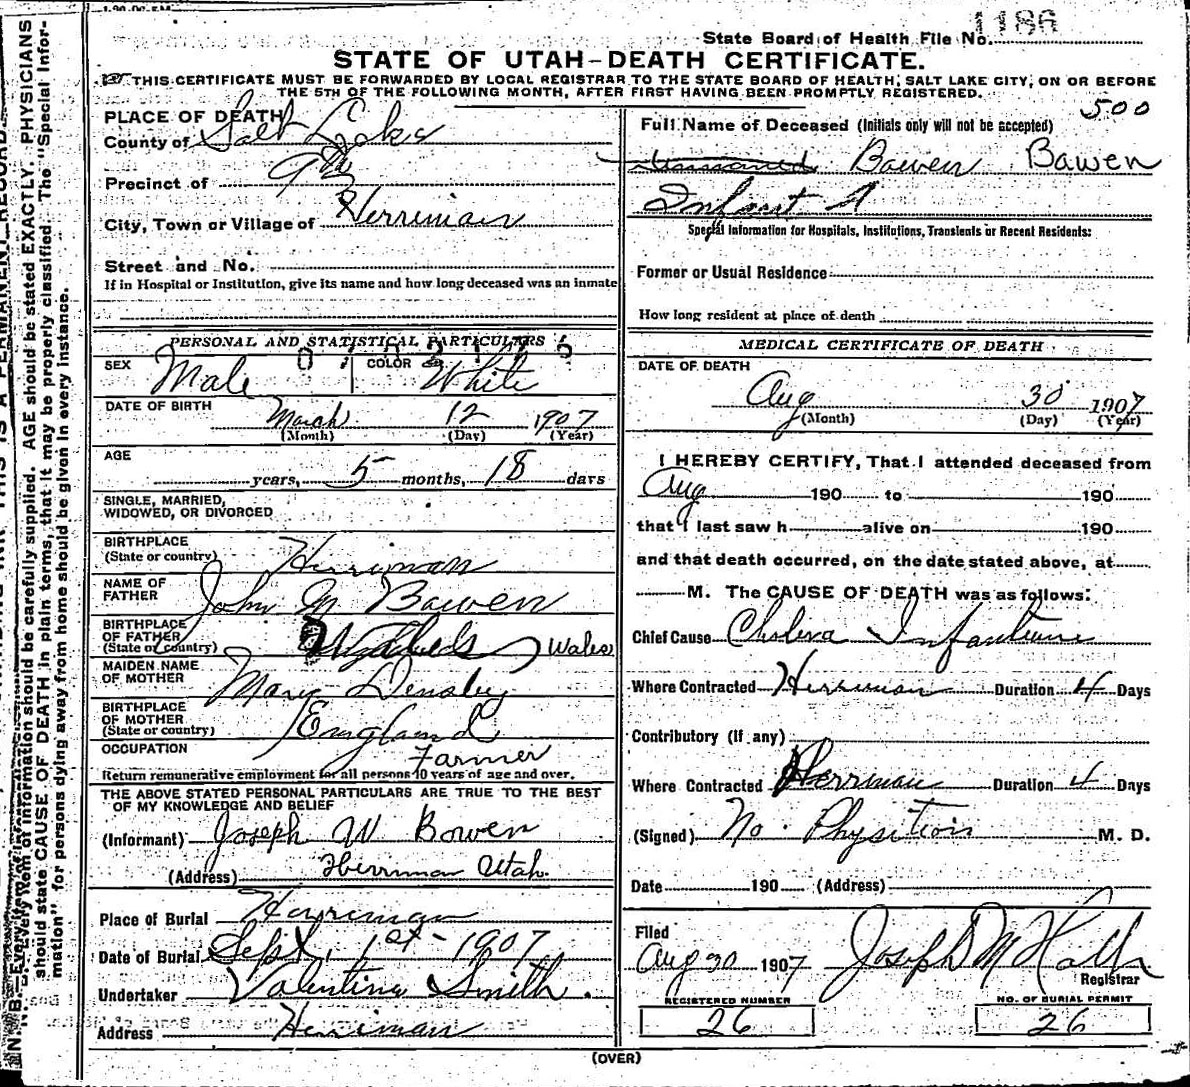 1186
State Board of Health File No.
STATE OF UTAH-DEATH CERTIFICATE.
THIS CERTIFICATE MUST BE FORWARDED BY LOCAL REGISTRAR TO THE STATE BOARD OF HEALTH, SALT LAKE CITY, ON OR BEFORE
THE 5TH OF THE FOLLOWING MONTH, AFTER FIRST HAVING BEEN PROMPTLY REGISTERED.
PLACE OF DEATH
County of Salt Lake
Precinct of 9th
City, Town or Village of Herriman
Street and No.
If in Hospital or Institution, give its name and how long deceased was an inmate
PERSONAL AND STATISTICAL PARTICULARS
SEX Male COLOR White
DATE OF BIRTH March 12 1907
(Month) (Day) (Year)
AGE
years, 5 months, 18 days
SINGLE, MARRIED,
WIDOWED, OR DIVORCED
BIRTHPLACE
(State or country) Herriman
NAME OF
FATHER John M Bawen
BIRTHPLACE
OF FATHER
(State or country) Wales
MAIDEN NAME
OF MOTHER Mary Densley
BIRTHPLACE
OF MOTHER
(State or country) England
OCCUPATION Farmer
Return remunerative employment for all persons 10 years of age and over.
THE ABOVE STATED PERSONAL PARTICULARS ARE TRUE TO THE BEST
OF MY KNOWLEDGE AND BELIEF
(Informant) Joseph W Bowen
(Address) Herriman Utah.
Place of Burial Herriman
Date of Burial Sept, 1st - 1907
Undertaker Valentina Smith.
Address Herriman
500
Full Name of Deceased (Initials only will not be accepted)
Unnamed Bawen Bawen
Infant
Special Information for Hospitals, Institutions, Transients or Recent Residents:
Former or Usual Residence
How long resident at place of death
MEDICAL CERTIFICATE OF DEATH
DATE OF DEATH
Aug 30 1907
(Month) (Day) (Year)
I HEREBY CERTIFY, That I attended deceased from
Aug 190 to 190
that I last saw h alive on 190
and that death occurred, on the date stated above, at
M. The CAUSE OF DEATH was as follows:
Chief Cause Cholera Infantum
Where Contracted Herriman Duration 4 Days
Contributory (If any)
Where Contracted Herriman Duration 4 Days
(Signed) No. Physition M. D.
Date 190 (Address)
Filed
Aug 30 1907 Joseph M
Registrar
REGISTERED NUMBER
26
NO. OF BURIAL PERMIT
26
(OVER)
N. B.—Every item of information should be carefully supplied. AGE should be stated EXACTLY. PHYSICIANS
should state CAUSE OF DEATH in plain terms, that it may be properly classified. The "Special Infor-
mation" for persons dying away from home should be given in every instance.
THIS IS A PERMANENT RECORD